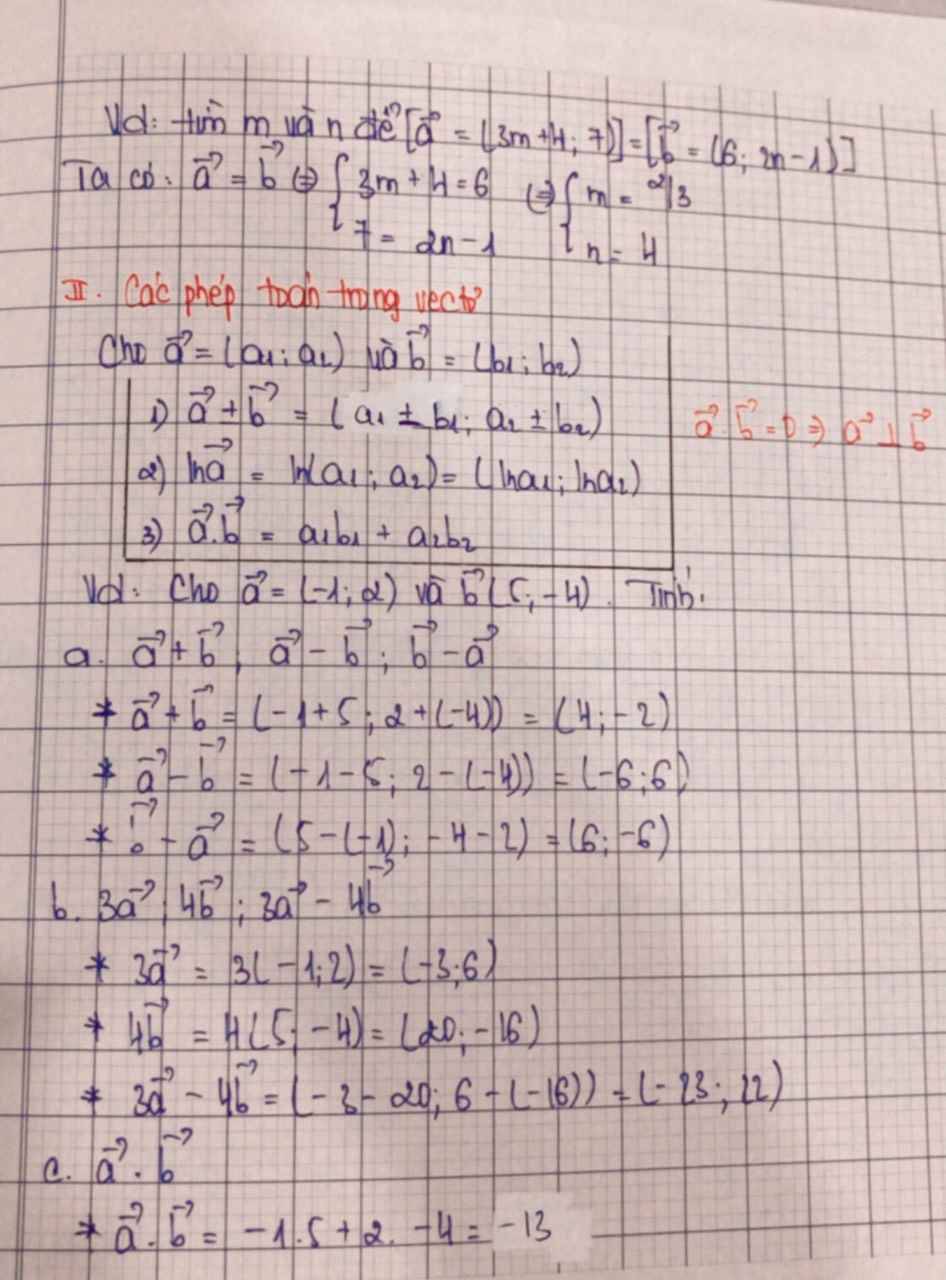 Vd: tìm m và n để [a⃗ = (3m+4; 7)] = [b⃗ = (6; 2n-1)]
Ta có: a⃗ = b⃗ ⇔ { 3m+4=6 ⇔ { m = 2/3
7 = 2n-1 n = 4
II. Các phép toán trong vectơ
Cho a⃗ = (a₁; a₂) và b⃗ = (b₁; b₂)
1) a⃗ ± b⃗ = (a₁ ± b₁; a₂ ± b₂)
a⃗.b⃗ = 0 ⇒ a⃗ ⊥ b⃗
2) ka⃗ = k(a₁; a₂) = (ka₁; ka₂)
3) a⃗.b⃗ = a₁b₁ + a₂b₂
Vd: Cho a⃗ = (-1; 2) và b⃗ (5; -4). Tính:
a. a⃗ + b⃗; a⃗ - b⃗; b⃗ - a⃗
* a⃗ + b⃗ = (-1+5; 2+(-4)) = (4; -2)
* a⃗ - b⃗ = (-1-5; 2-(-4)) = (-6; 6)
* b⃗ - a⃗ = (5-(-1); -4-2) = (6; -6)
b. 3a⃗; 4b⃗; 3a⃗ - 4b⃗
* 3a⃗ = 3(-1; 2) = (-3; 6)
* 4b⃗ = 4(5; -4) = (20; -16)
* 3a⃗ - 4b⃗ = (-3-20; 6-(-16)) = (-23; 22)
c. a⃗.b⃗
* a⃗.b⃗ = -1.5 + 2.-4 = -13